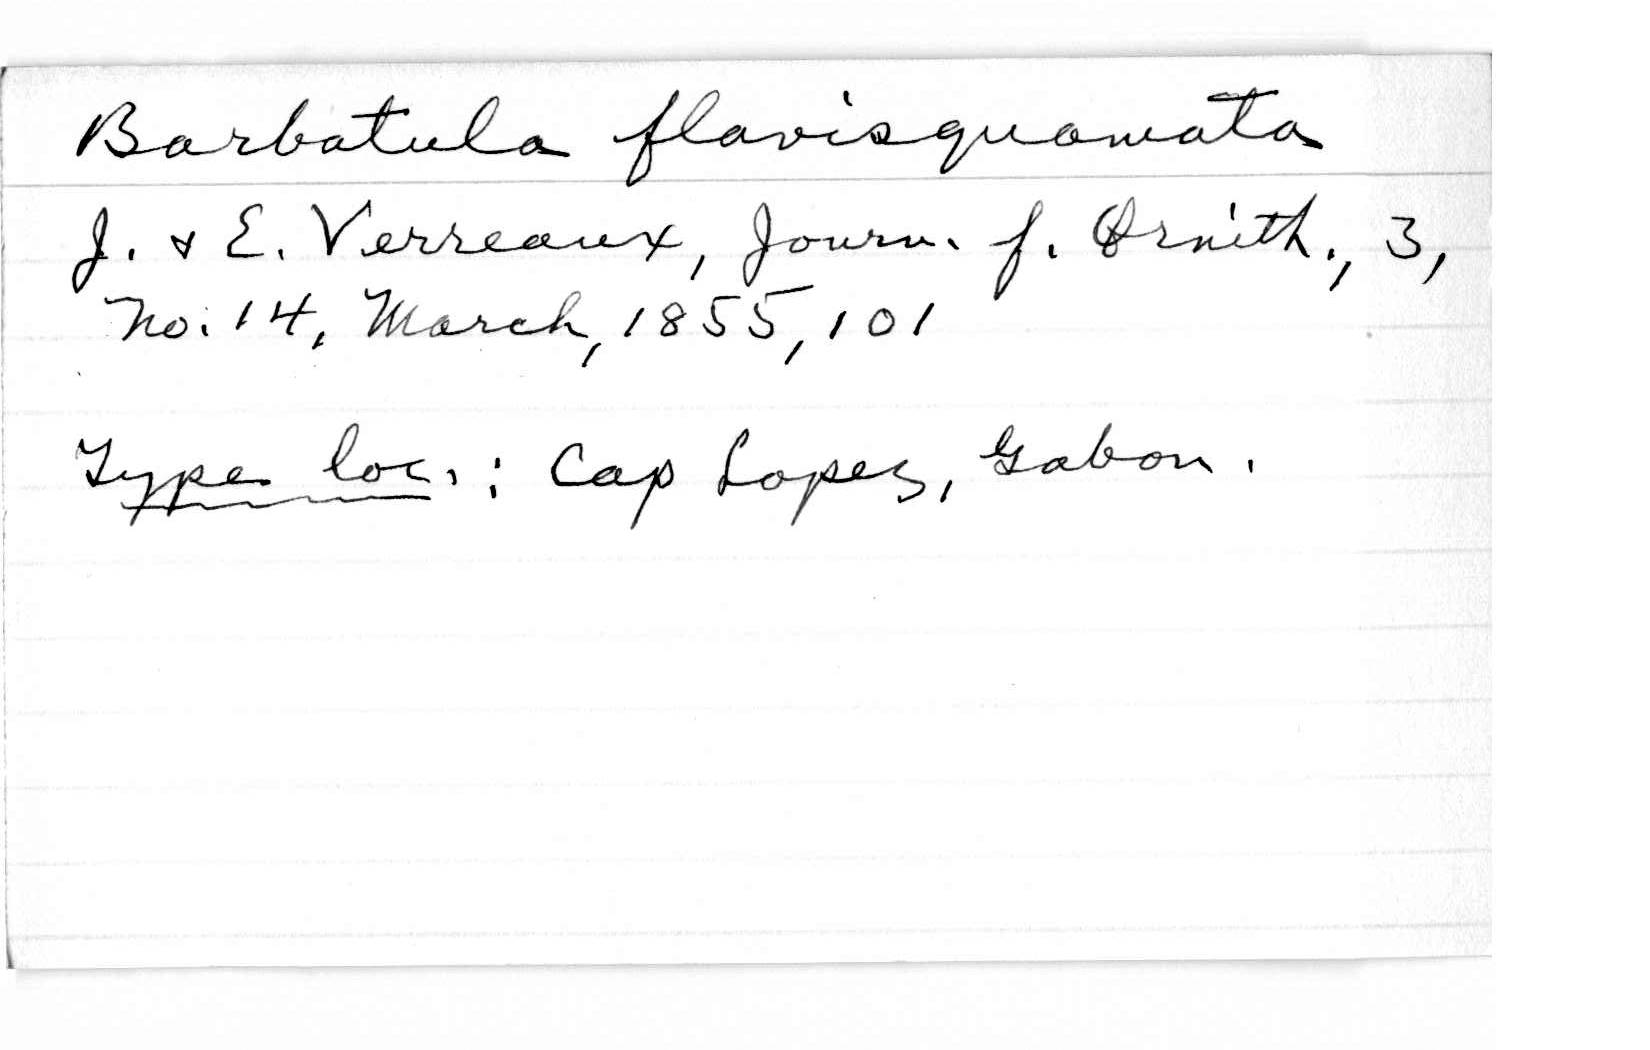 Barbatula flavisquamata
J. & E. Verreaux, Journ. f. Ornith., 3,
No. 14, March, 1855, 101
Type loc.: Cap Lopez, Gabon.